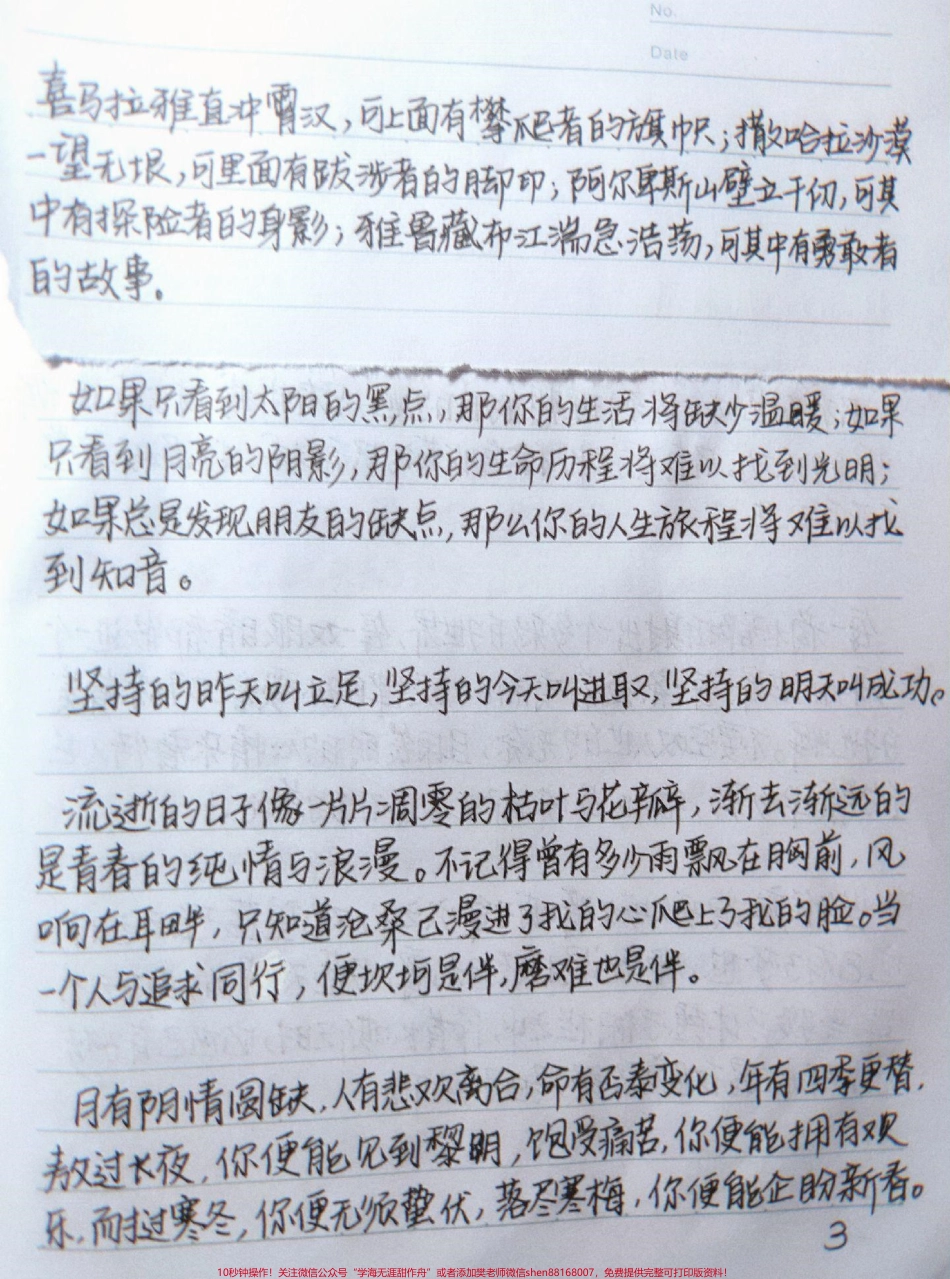 No.
Date
喜马拉雅直冲霄汉，可上面有攀爬者的旗帜；撒哈拉沙漠
一望无垠，可里面有跋涉者的脚印；阿尔卑斯山壁立千仞，可其
中有探险者的身影；雅鲁藏布江湍急浩荡，可其中有勇敢者
的故事。
如果只看到太阳的黑点，那你的生活将缺少温暖；如果
只看到月亮的阴影，那你的生命历程将难以找到光明；
如果总是发现朋友的缺点，那么你的人生旅程将难以找
到知音。
坚持的昨天叫立足，坚持的今天叫进取，坚持的明天叫成功。
流逝的日子像一片片凋零的枯叶与花瓣，渐去渐远的
是青春的纯情与浪漫。不记得曾有多少雨飘在胸前，风
响在耳畔，只知道沧桑已漫进了我的心爬上了我的脸。当
一个人与追求同行，便坎坷是伴，磨难也是伴。
月有阴情圆缺，人有悲欢离合，命有否泰变化，年有四季更替，
熬过长夜，你便能见到黎明，饱受痛苦，你便能拥有欢
乐，耐过寒冬，你便无须蛰伏，落尽寒梅，你便能企盼新春。
3
10秒钟操作！关注微信公众号“学海无涯甜作舟”或者添加樊老师微信shen88168007，免费提供完整可打印版资料！